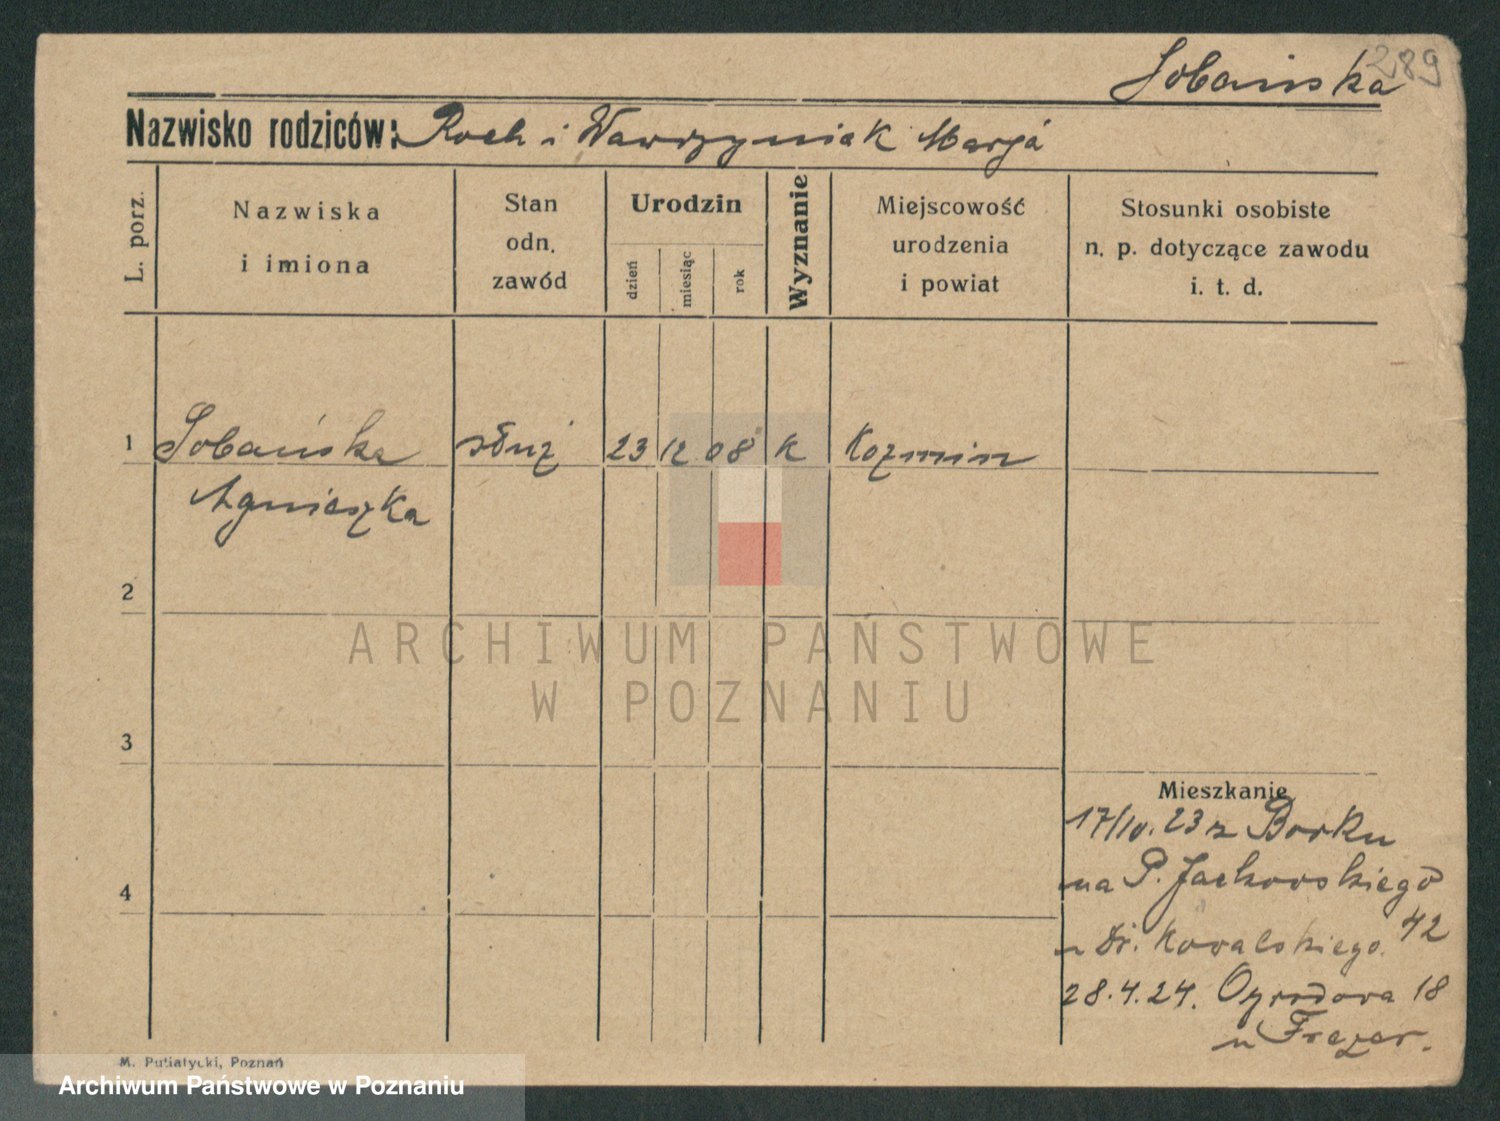 289
Sobańska
Nazwisko rodziców: Roch i Wawrzyniak Marja
L. porz.
Nazwiska
i imiona
Stan
odn.
zawód
Urodzin
dzień
miesiąc
rok
Wyznanie
Miejscowość
urodzenia
i powiat
Stosunki osobiste
n. p. dotyczące zawodu
i. t. d.
1 Sobańska służ 23 12 08 K Kozmin
Agnieszka
2
3
4
ARCHIWUM PAŃSTWOWE
W POZNANIU
Mieszkanie
17/10.23 z Borku
na P. Jackowskiego
42
u Dr. Kowalskiego.
28.4.24. Ogrodowa 18
u Frezer.
M. Putiatycki, Poznań
Archiwum Państwowe w Poznaniu